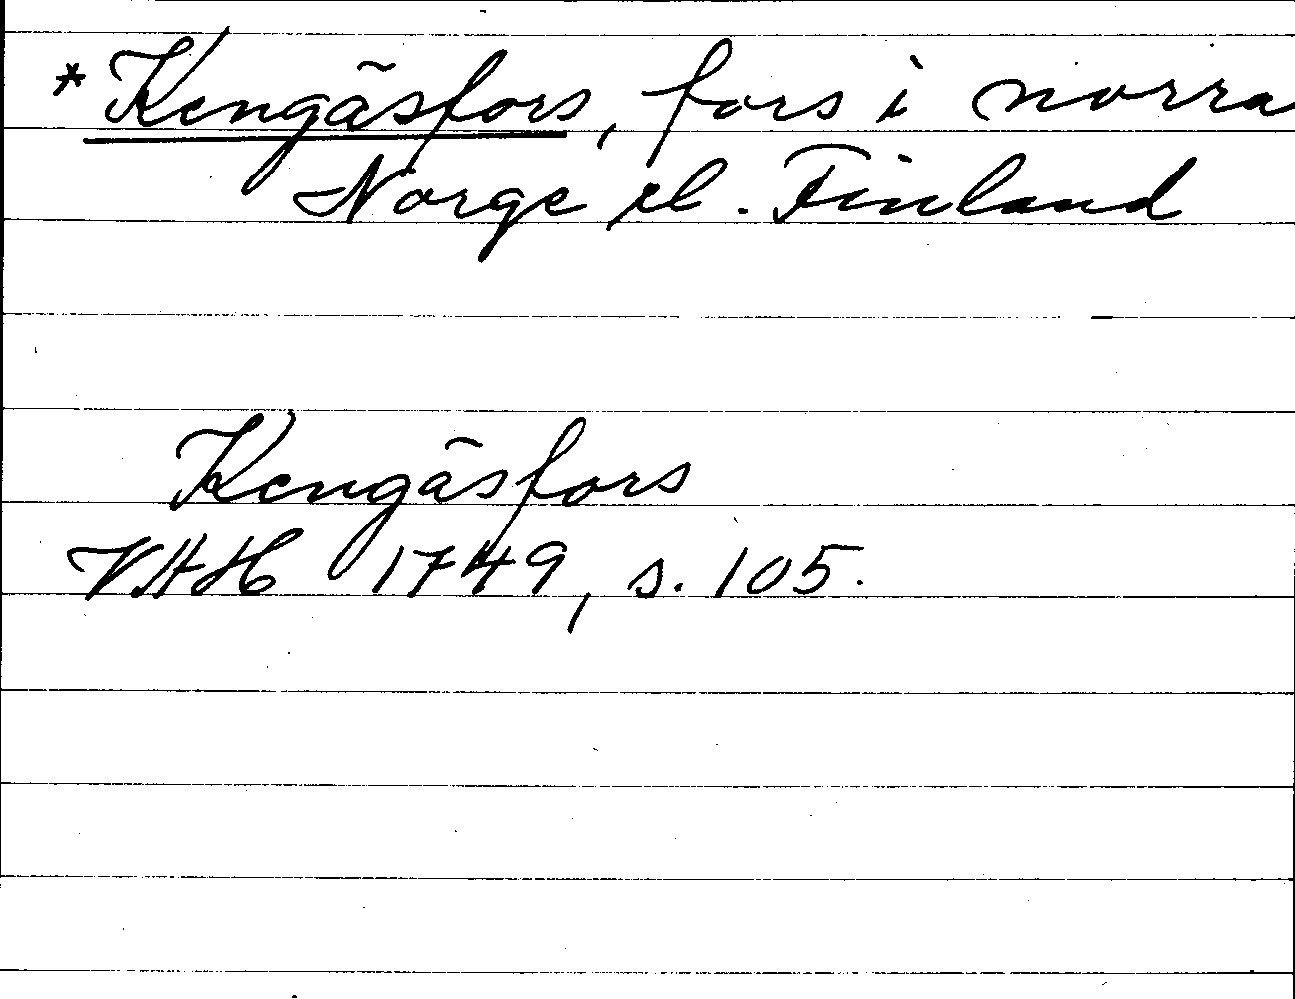 *Kengäsfors, fors i norra
Norge el. Finland
Kengäsfors
VAH 1749, s. 105.